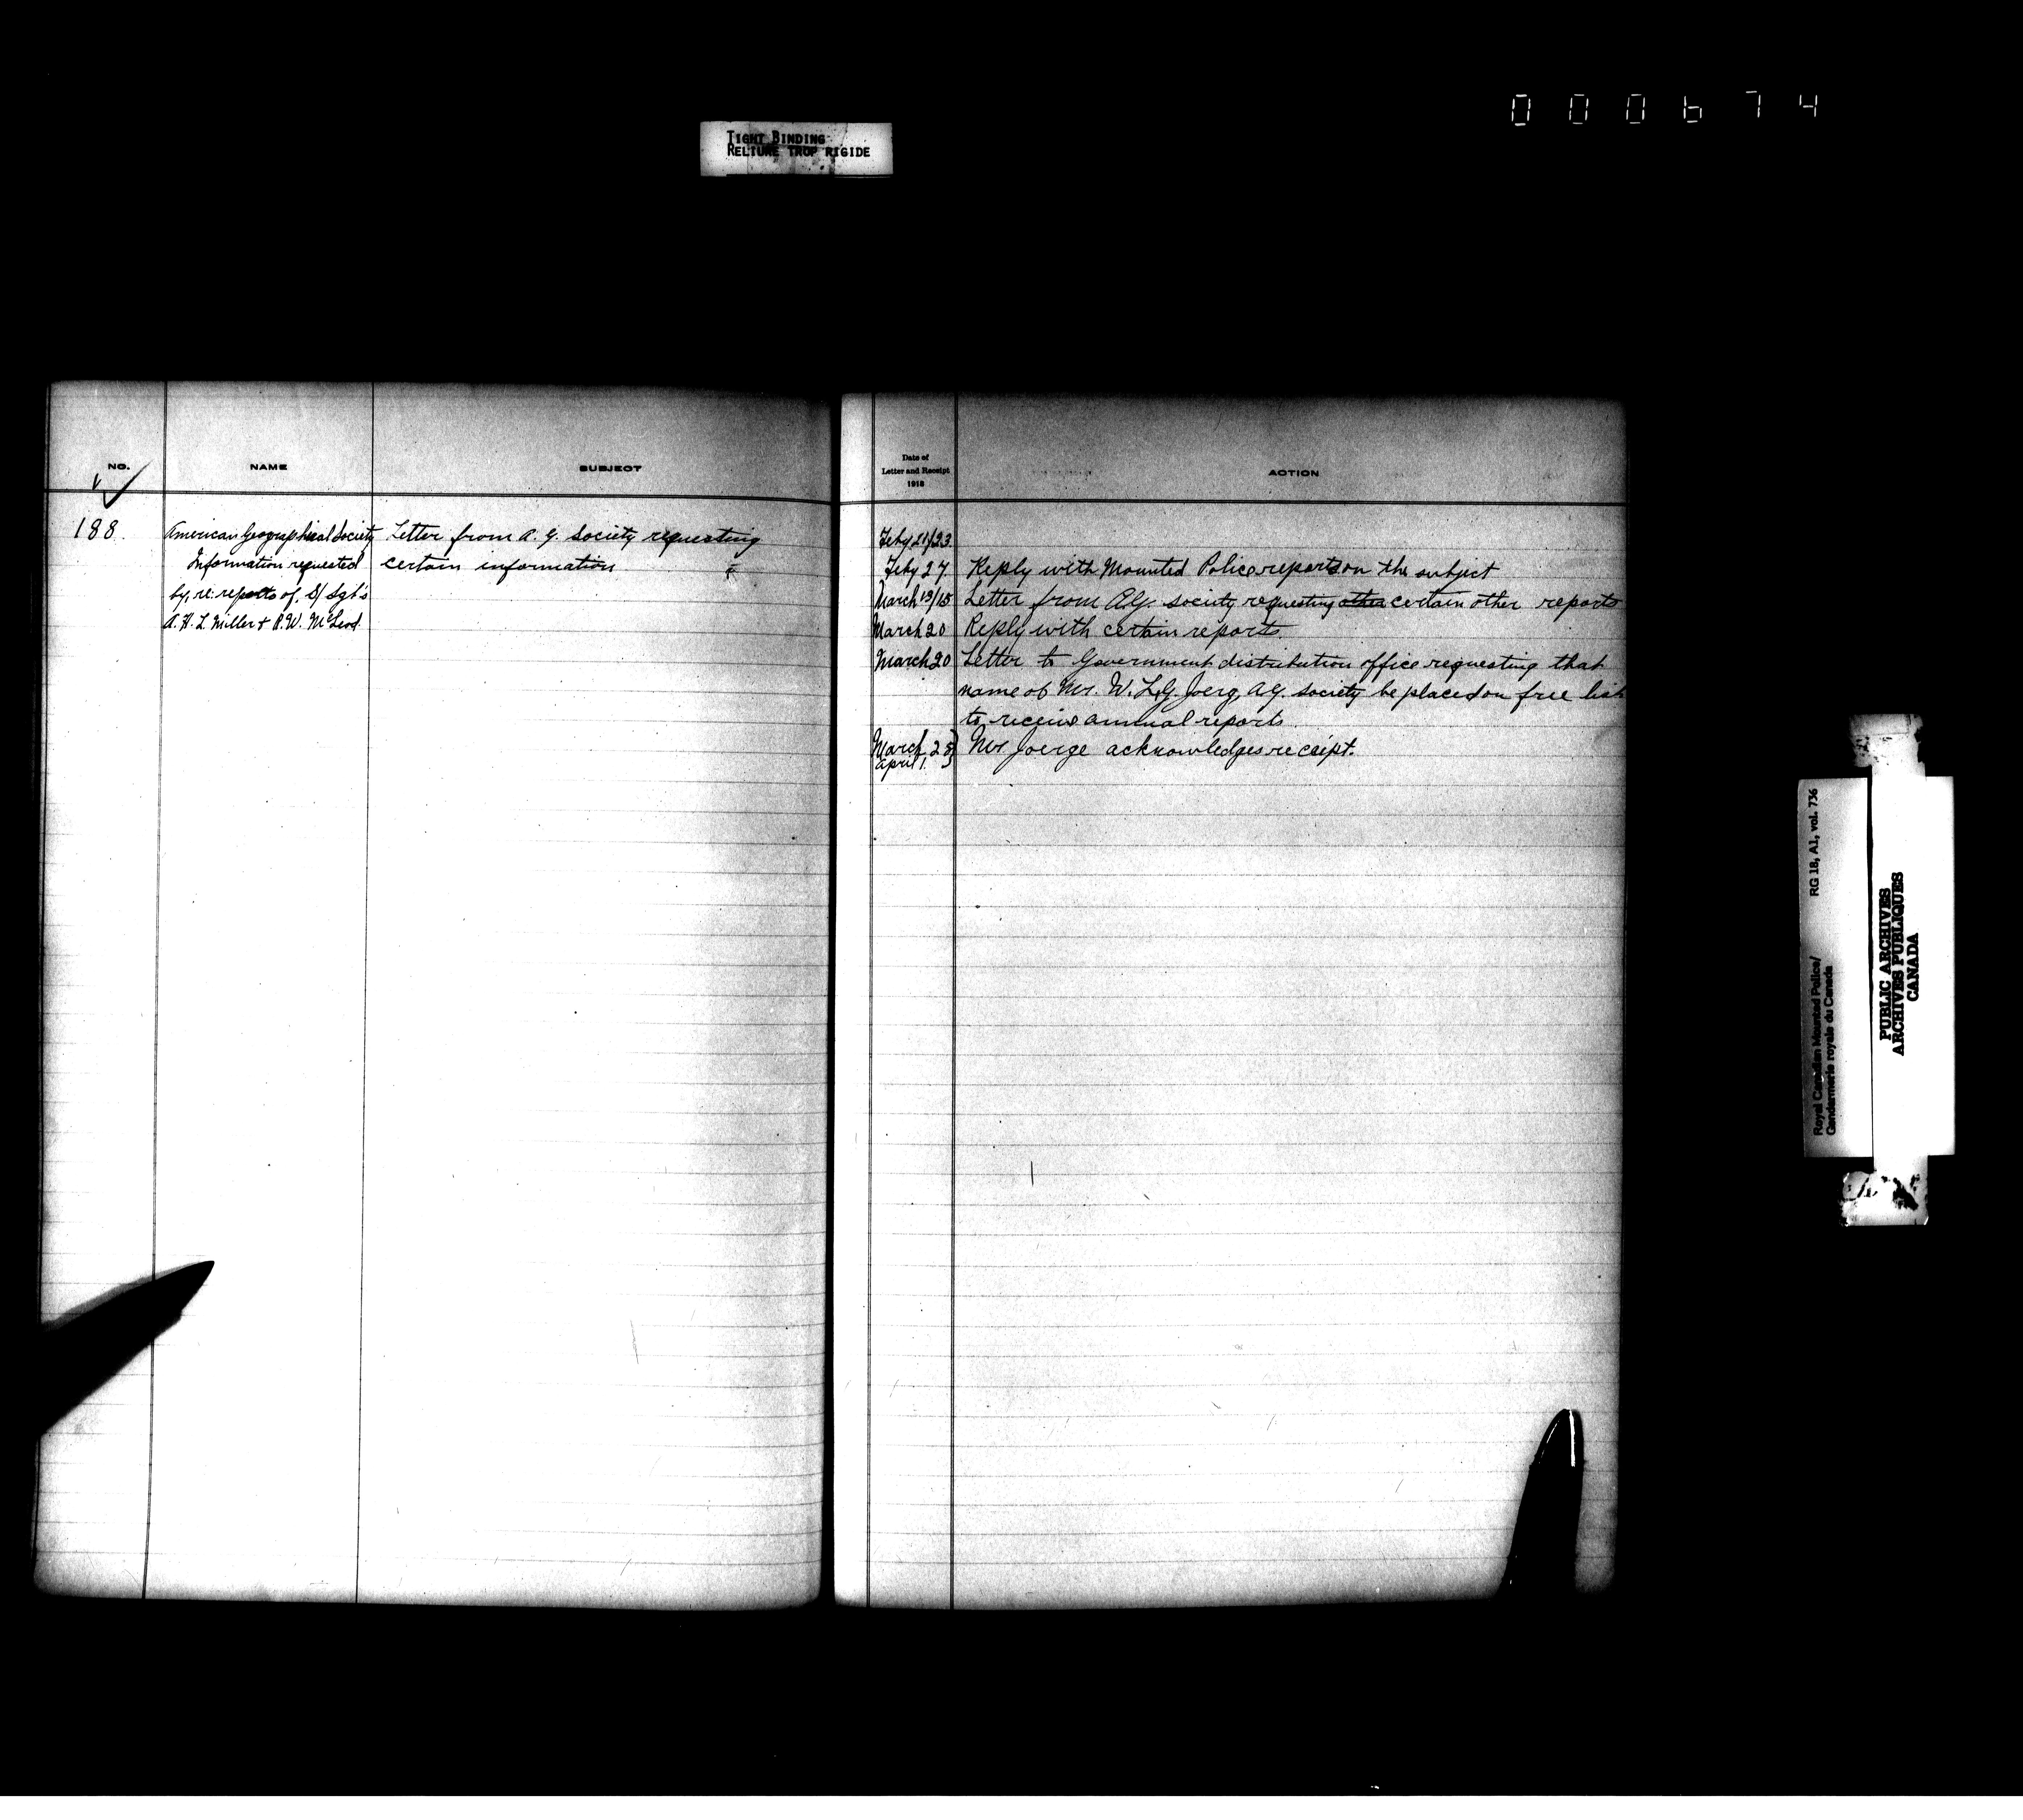 000674
TIGHT BINDING
RELIURE TROP RIGIDE
NO.
NAME
SUBJECT
188.
American Geographical Society
Information requested
by, re: reports of, S/Sgt's
A. H. L. Miller & R.W. McLeod.
Letter from A. G. Society requesting
certain information
Date of
Letter and Receipt
1918
ACTION
Feby 21/23
Feby 27
Reply with Mounted Police reports on the subject
March 13/15
Letter from A.G. society requesting other certain other reports
March 20
Reply with certain reports.
March 20
Letter to Government distribution office requesting that
name of Mr. W. L. G. Joerg, A.G. society be placed on free list
to receive annual reports.
March 28
April 1.
Mr Joerge acknowledges receipt.
Royal Canadian Mounted Police/
Gendarmerie royale du Canada
RG 18, A1, vol. 736
PUBLIC ARCHIVES
ARCHIVES PUBLIQUES
CANADA